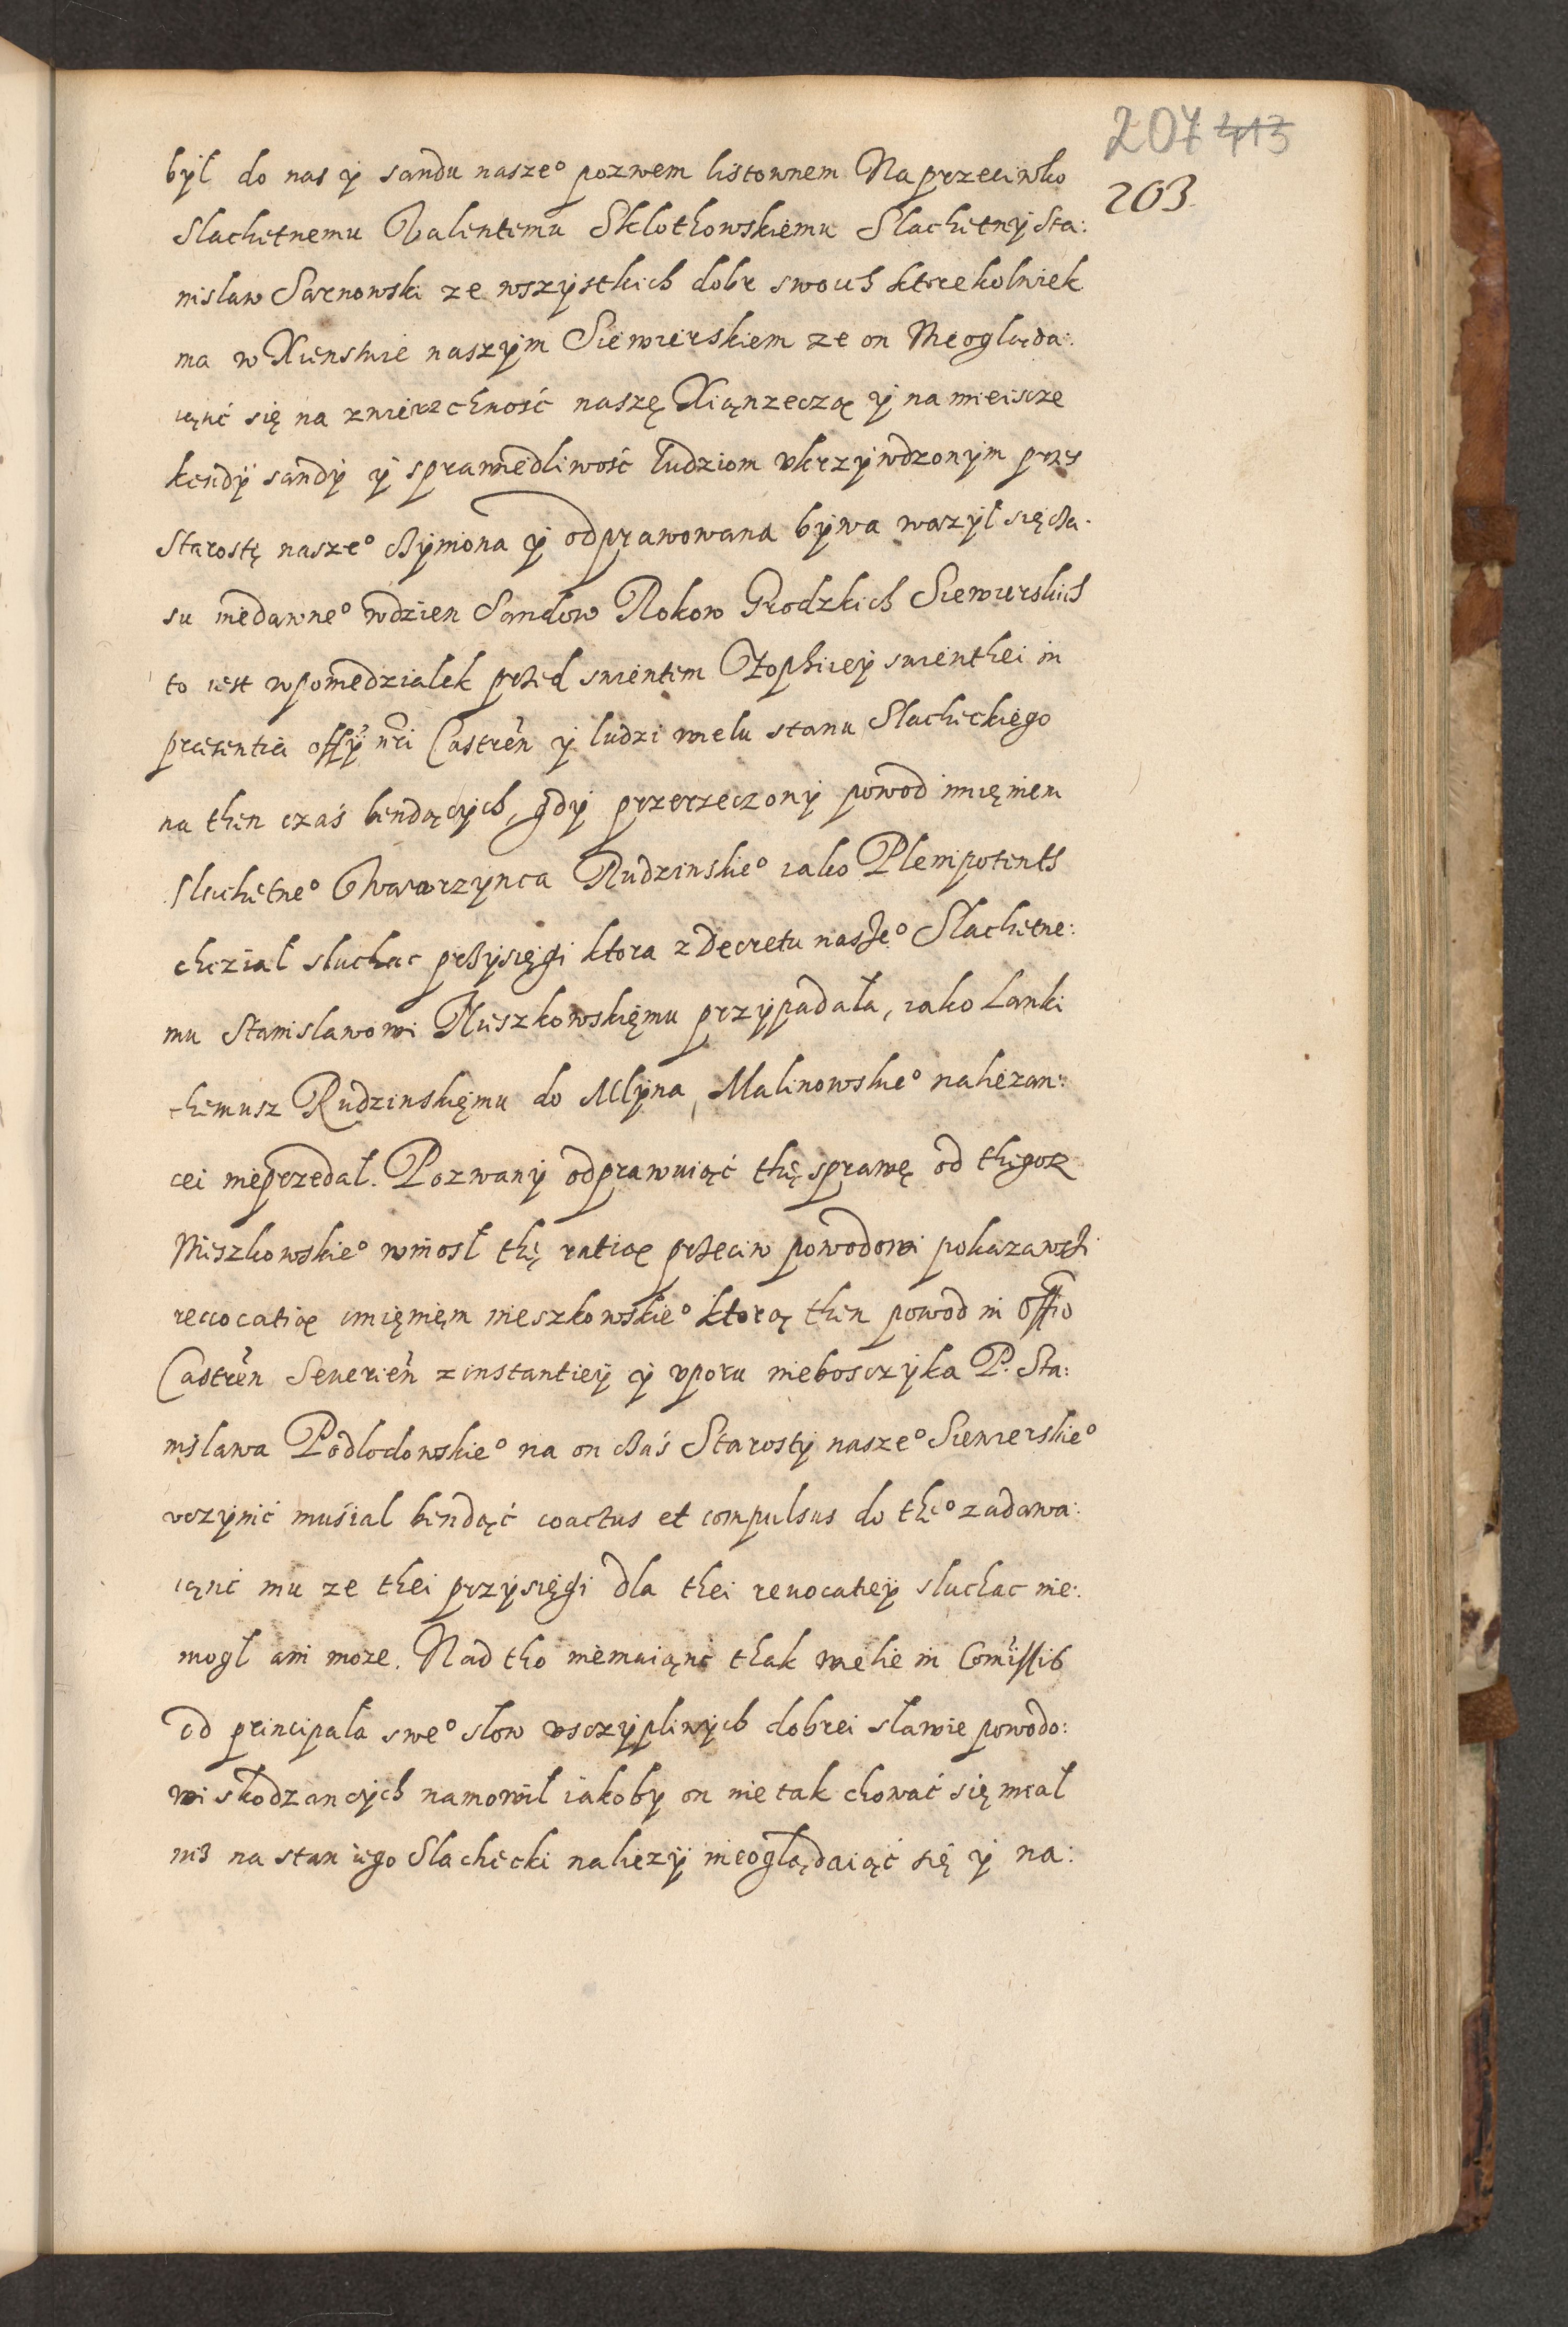 207 413
203
był do nas y sandu nasze° pozwem listownem Naprzeciwko
Slachetnemu Valentemu Sklothowskiemu Slachetny Sta:
nislaw Sarnowski ze wszystkich dobr swoich ktorekolwiek
ma w Xienstwie naszym Siewierskiem ze on Nieogląda:
iąnć się na zwierzchność naszę Xiąnzeczą y na mieiscze
kendy sandy y sprawiedliwość ludziom ukrzywdzonym przes
Starostę nasze° czyniona y odprawowana bywa wazył się cza:
su niedawne° wdzien Sandow Rokow Grodzkich Siewierskich
to iest wponiedzialek przed swientem Zophiey swienthei in
praesentia offy nri Castren y ludzi wielu stanu Slacheckiego
na then czaś bendących, gdy przerzeczony powod imięniem
slachetne° Wawrzynca Rudzinskie° iako Plenipotents
chczial sluchac przysięgi ktora z Decretu nasze° Slachetne:
mu Stanislawowi Mieszkowskięmu przypadała, iako Lanki
themusz Rudzinskięmu do Mlyna, Malinowskie° nalezan:
cei nieprzedal. Pozwany odprawuiąć thę sprawę od thegoz
Mieszkowskie° wniosł thę ratią przeciw powodowi pokazawszi
revocatią imięnięm mieszkowskie° ktorą then powod in Offio
Castren Severien z instantiey y uporu niebosczyka P. Sta:
nislawa Podlodowskie° na on czaś Starosty nasze° Siewierskie°
uczynić muśial bendąć coactus et compulsus do the° zadawa:
iąnć mu ze thei przysięgi dla thei revocatiey sluchac nie:
mogl ani moze. Nad tho niemaiąnć thak wiele in Comissis
od principala swe° slow usczypliwych dobrei slawie powodo:
wi skodzancych namowił iakoby on nie tak chować się miał
niz na stan iego Slachecki nalezy nieoglądaiąć się y na: